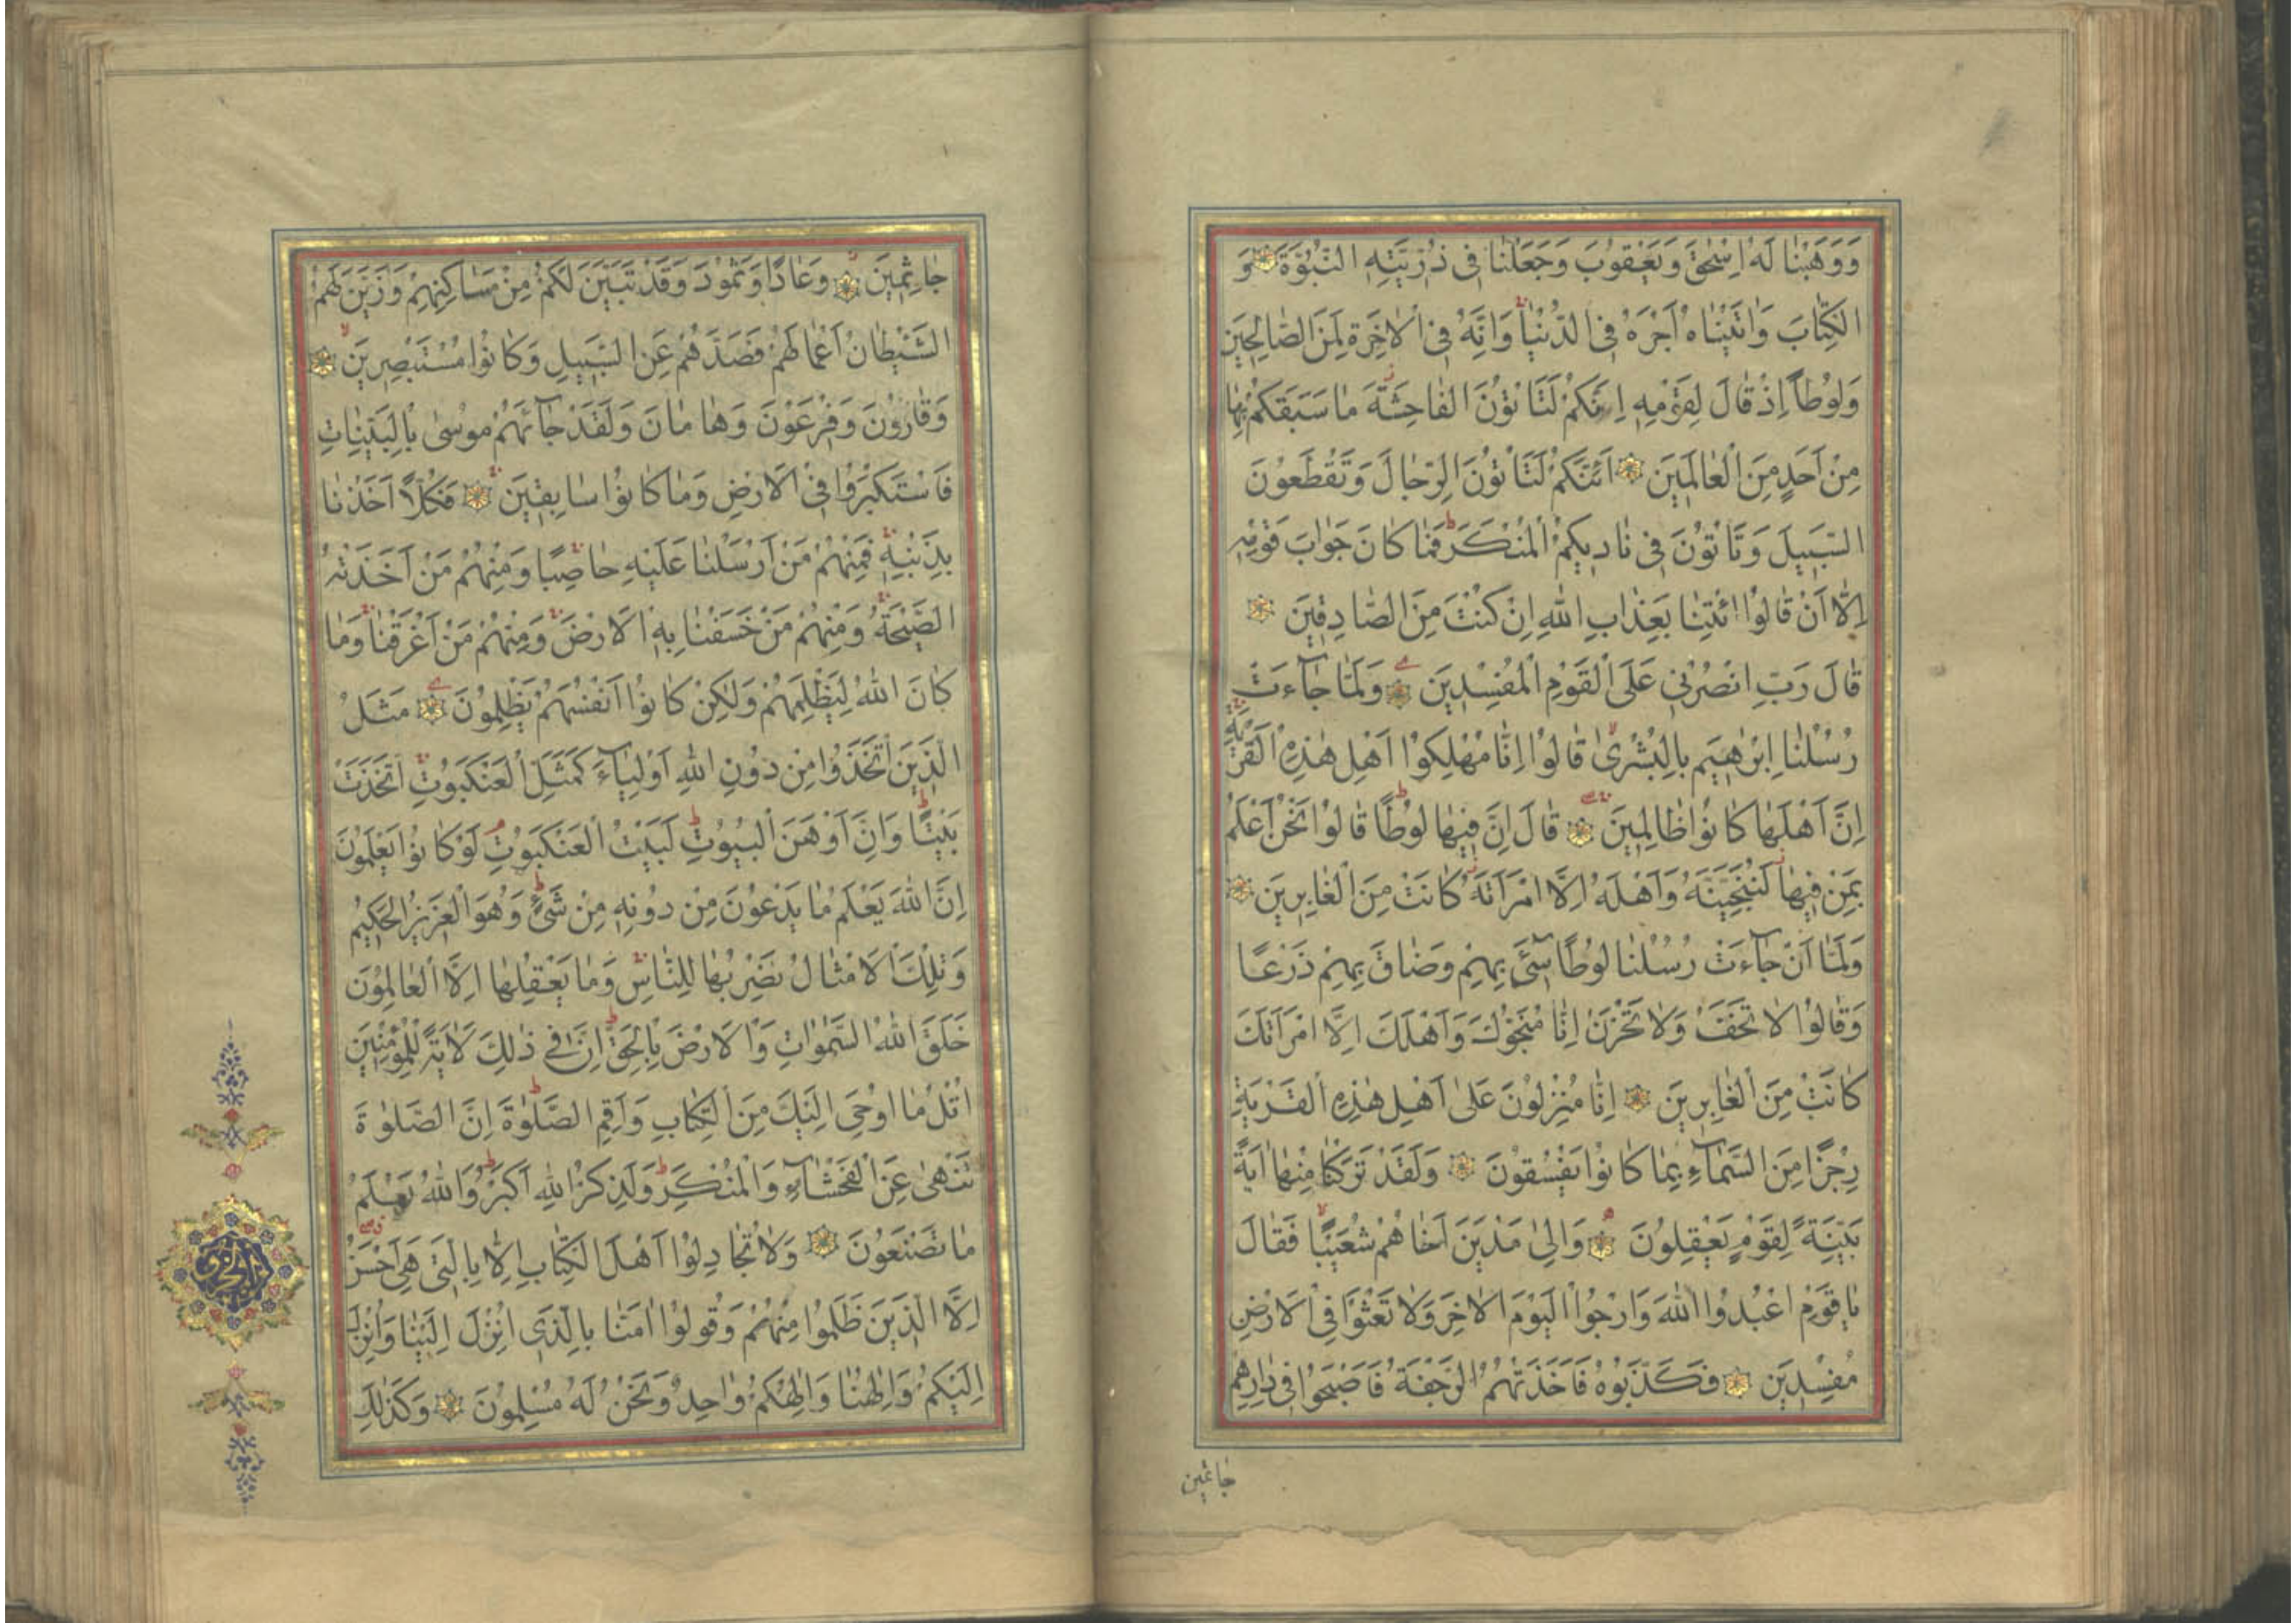 وَوَهَبْنَا لَهُ اِسْحٰقَ وَيَعْقُوبَ وَجَعَلْنَا فِى ذُرِّيَّتِهِ النُّبُوَّةَ وَ
الْكِتَابَ وَاٰتَيْنَاهُ اَجْرَهُ فِى الدُّنْيَا وَاِنَّهُ فِى الْاٰخِرَةِ لَمِنَ الصَّالِحِينَ
وَلُوطًا اِذْ قَالَ لِقَوْمِهِ اِنَّكُمْ لَتَاْتُونَ الْفَاحِشَةَ مَا سَبَقَكُمْ بِهَا
مِنْ اَحَدٍ مِنَ الْعَالَمِينَ ۞ اَئِنَّكُمْ لَتَاْتُونَ الرِّجَالَ وَتَقْطَعُونَ
السَّبِيلَ وَتَاْتُونَ فِى نَادِيكُمُ الْمُنْكَرَ ط فَمَا كَانَ جَوَابَ قَوْمِهِ
اِلَّا اَنْ قَالُوا ائْتِنَا بِعَذَابِ اللّٰهِ اِنْ كُنْتَ مِنَ الصَّادِقِينَ ۞
قَالَ رَبِّ انْصُرْنِى عَلَى الْقَوْمِ الْمُفْسِدِينَ ۞ وَلَمَّا جَاۤءَتْ
رُسُلُنَا اِبْرٰهِيمَ بِالْبُشْرٰى قَالُوا اِنَّا مُهْلِكُوا اَهْلِ هٰذِهِ الْقَرْيَةِ
اِنَّ اَهْلَهَا كَانُوا ظَالِمِينَ ۞ قَالَ اِنَّ فِيهَا لُوطًا ط قَالُوا نَحْنُ اَعْلَمُ
بِمَنْ فِيهَا لَنُنَجِّيَنَّهُ وَاَهْلَهُ اِلَّا امْرَاَتَهُ كَانَتْ مِنَ الْغَابِرِينَ ۞
وَلَمَّا اَنْ جَاۤءَتْ رُسُلُنَا لُوطًا سِىۤءَ بِهِمْ وَضَاقَ بِهِمْ ذَرْعًا
وَقَالُوا لَا تَخَفْ وَلَا تَحْزَنْ اِنَّا مُنَجُّوكَ وَاَهْلَكَ اِلَّا امْرَاَتَكَ
كَانَتْ مِنَ الْغَابِرِينَ ۞ اِنَّا مُنْزِلُونَ عَلٰى اَهْلِ هٰذِهِ الْقَرْيَةِ
رِجْزًا مِنَ السَّمَاۤءِ بِمَا كَانُوا يَفْسُقُونَ ۞ وَلَقَدْ تَرَكْنَا مِنْهَا اٰيَةً
بَيِّنَةً لِقَوْمٍ يَعْقِلُونَ ۞ وَاِلٰى مَدْيَنَ اَخَاهُمْ شُعَيْبًا فَقَالَ
يَا قَوْمِ اعْبُدُوا اللّٰهَ وَارْجُوا الْيَوْمَ الْاٰخِرَ وَلَا تَعْثَوْا فِى الْاَرْضِ
مُفْسِدِينَ ۞ فَكَذَّبُوهُ فَاَخَذَتْهُمُ الرَّجْفَةُ فَاَصْبَحُوا فِى دَارِهِمْ
جَاثِمِين
جَاثِمِينَ ۞ وَعَادًا وَثَمُودَ وَقَدْ تَبَيَّنَ لَكُمْ مِنْ مَسَاكِنِهِمْ وَزَيَّنَ لَهُمُ
الشَّيْطَانُ اَعْمَالَهُمْ فَصَدَّهُمْ عَنِ السَّبِيلِ وَكَانُوا مُسْتَبْصِرِينَ ۞
وَقَارُونَ وَفِرْعَوْنَ وَهَامَانَ وَلَقَدْ جَاۤئَهُمْ مُوسٰى بِالْبَيِّنَاتِ
فَاسْتَكْبَرُوا فِى الْاَرْضِ وَمَا كَانُوا سَابِقِينَ ۞ فَكُلًّا اَخَذْنَا
بِذَنْبِهِ فَمِنْهُمْ مَنْ اَرْسَلْنَا عَلَيْهِ حَاصِبًا وَمِنْهُمْ مَنْ اَخَذَتْهُ
الصَّيْحَةُ وَمِنْهُمْ مَنْ خَسَفْنَا بِهِ الْاَرْضَ وَمِنْهُمْ مَنْ اَغْرَقْنَا وَمَا
كَانَ اللّٰهُ لِيَظْلِمَهُمْ وَلٰكِنْ كَانُوا اَنْفُسَهُمْ يَظْلِمُونَ ۞ مَثَلُ
الَّذِينَ اتَّخَذُوا مِنْ دُونِ اللّٰهِ اَوْلِيَاۤءَ كَمَثَلِ الْعَنْكَبُوتِ اتَّخَذَتْ
بَيْتًا ط وَاِنَّ اَوْهَنَ الْبُيُوتِ لَبَيْتُ الْعَنْكَبُوتِ لَوْ كَانُوا يَعْلَمُونَ
اِنَّ اللّٰهَ يَعْلَمُ مَا يَدْعُونَ مِنْ دُونِهِ مِنْ شَىْءٍ ط وَهُوَ الْعَزِيزُ الْحَكِيمُ
وَتِلْكَ الْاَمْثَالُ نَضْرِبُهَا لِلنَّاسِ وَمَا يَعْقِلُهَا اِلَّا الْعَالِمُونَ
خَلَقَ اللّٰهُ السَّمٰوَاتِ وَالْاَرْضَ بِالْحَقِّ ط اِنَّ فِى ذٰلِكَ لَاٰيَةً لِلْمُؤْمِنِينَ
اُتْلُ مَا اُوحِىَ اِلَيْكَ مِنَ الْكِتَابِ وَاَقِمِ الصَّلٰوةَ ط اِنَّ الصَّلٰوةَ
تَنْهٰى عَنِ الْفَحْشَاۤءِ وَالْمُنْكَرِ ط وَلَذِكْرُ اللّٰهِ اَكْبَرُ ط وَاللّٰهُ يَعْلَمُ
مَا تَصْنَعُونَ ۞ وَلَا تُجَادِلُوا اَهْلَ الْكِتَابِ اِلَّا بِالَّتِى هِىَ اَحْسَنُ
اِلَّا الَّذِينَ ظَلَمُوا مِنْهُمْ وَقُولُوا اٰمَنَّا بِالَّذِى اُنْزِلَ اِلَيْنَا وَاُنْزِلَ
اِلَيْكُمْ وَاِلٰهُنَا وَاِلٰهُكُمْ وَاحِدٌ وَنَحْنُ لَهُ مُسْلِمُونَ ۞ وَكَذٰلِكَ